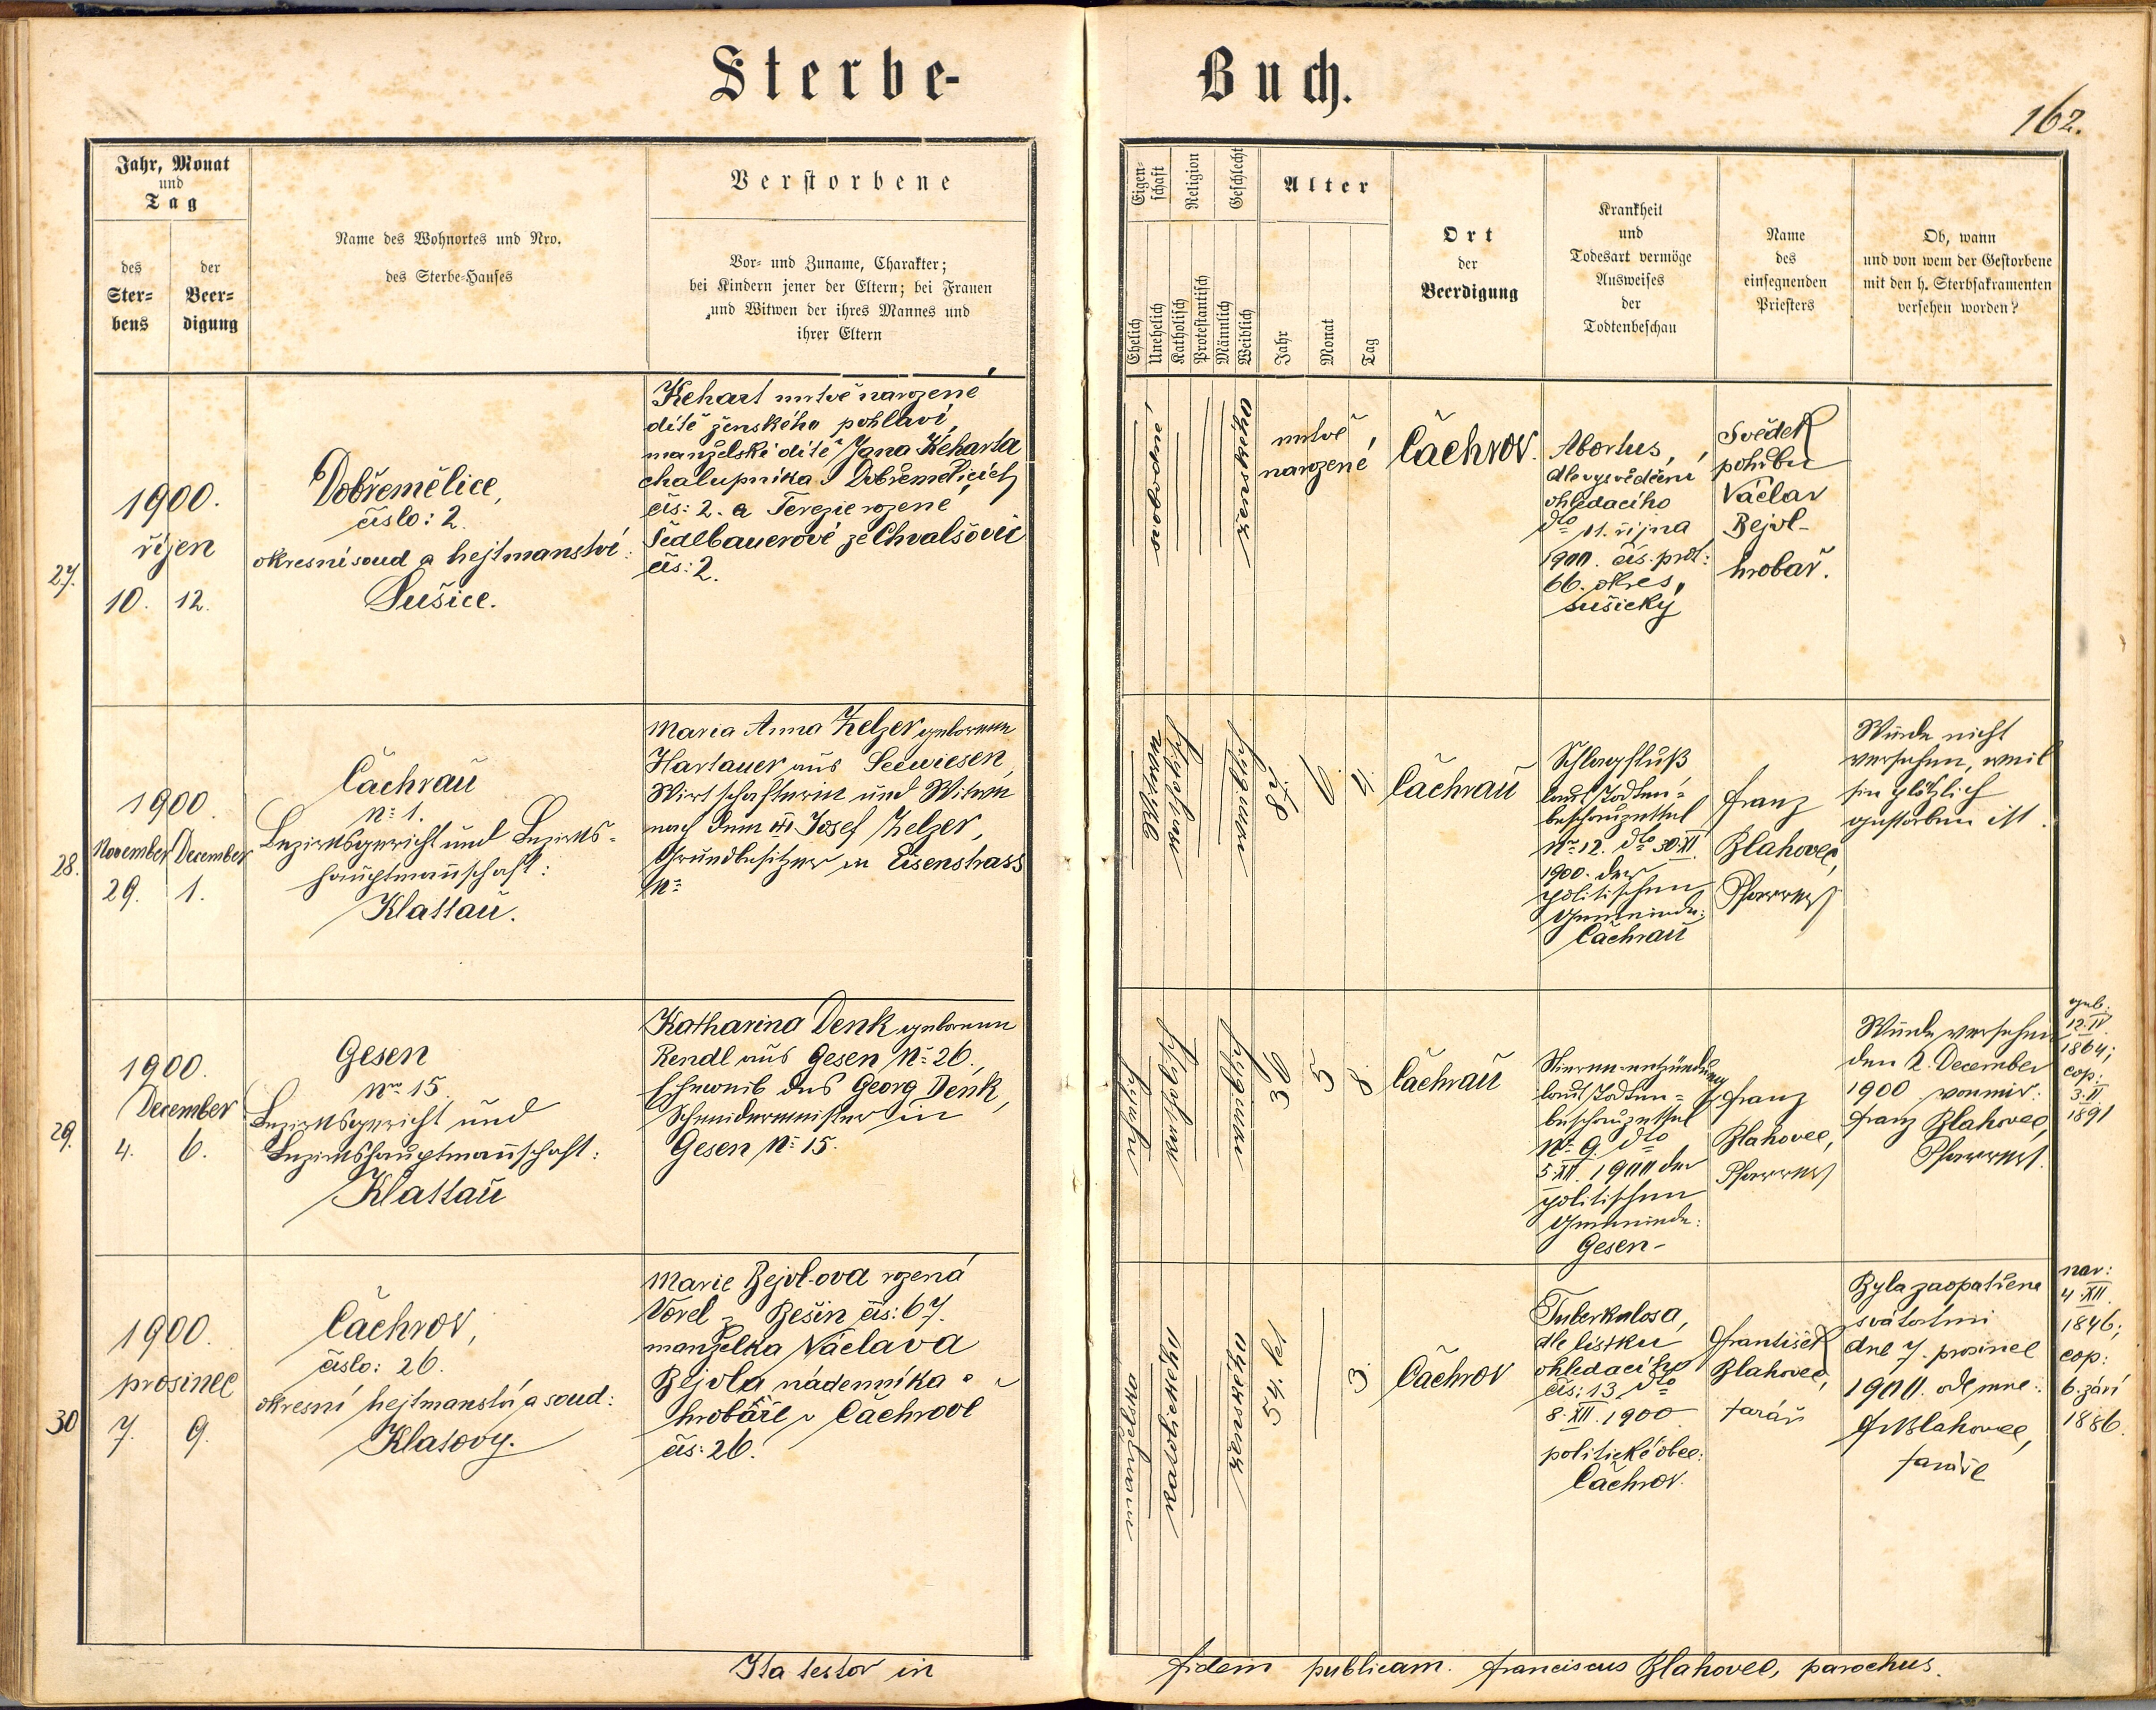 Sterbe-
Buch.
162.
Jahr, Monat
und
Tag
des
Ster=
bens
der
Beer=
digung
Name des Wohnortes und Nro.
des Sterbe-Hauses
Verstorbene
Vor- und Zuname, Charakter;
bei Kindern jener der Eltern; bei Frauen
und Witwen der ihres Mannes und
ihrer Eltern
Eigen-
schaft
Religion
Geschlecht
Ehelich
Unehelich
Katholisch
Protestantisch
Männlich
Weiblich
Alter
Jahr
Monat
Tag
Ort
der
Beerdigung
Krankheit
und
Todesart vermöge
Ausweises
der
Todtenbeschau
Name
des
einsegnenden
Priesters
Ob, wann
und von wem der Gestorbene
mit den h. Sterbsakramenten
versehen worden?
27.
1900.
říjen
10. 12.
Dobřemělice,
číslo: 2.
okresní soud a hejtmanství:
Sušice.
Kehart mrtvě narozené
dítě ženského pohlaví,
manželské dítě Jana Keharta
chalupníka v Dobřemělicích
čís: 2. a Terezie rozené
Sedlbauerové ze Chvalšovic
čís: 2.
ženského
mrtvě
narozené
Čachrov.
Abortus,
dle vysvědčení
ohledacího
dto 11. října
1900. čís. prot:
66. okres,
sušický
Svědek
pohřbu
Václav
Bejvl-
hrobař.
28.
1900.
November December
29. 1.
Čachrau
No 1.
Bezirksgericht und Bezirks-
hauptmannschaft:
Klattau.
Maria Anna Zelzer geborene
Hartauer aus Seewiesen,
Wirtschafterin und Witwe
nach dem Josef Zelzer,
Grundbesitzer in Eisenstrass
No
katholisch
weiblich
82.
6
4.
Čachrau
Schlagfluß
laut Todten=
beschauzettel
No 12. dto 30.XI.
1900. der
politischen
Gemeinde:
Čachrau
Franz
Blahovec,
Pfarrer
Wurde nicht
versehen, weil
sie plötzlich
gestorben ist.
29.
1900.
December
4. 6.
Gesen
Nro 15.
Bezirksgericht und
Bezirkshauptmannschaft:
Klattau
Katharina Denk geborene
Rendl aus Gesen No 26.,
Eheweib des Georg Denk,
Schneidermeister in
Gesen No 15.
eheliche
katholisch
weiblich
36
5
8.
Čachrau
laut Todten=
beschauzettel
No 9. dto
5.XII. 1900 der
politischen
Gemeinde:
Gesen-
Franz
Blahovec,
Pfarrer
Wurde versehen
den 2. December
1900 von mir:
Franz Blahovec,
Pfarrer.
geb.
12.IV.
1864;
cop:
3.II.
1891
30
1900.
prosinec
7. 9.
Čachrov,
číslo: 26.
okresní hejtmanství a soud:
Klatovy.
Marie Bejvl-ova rozená
Vorel z Bešin čís: 67.
manželka Václava
Bejvla nádenníka a
hrobaře v Čachrově
čís: 26.
manželská
katolického
ženského
54. let
3.
Čachrov
Tuberkulosa,
dle lístku
ohledacího
čís: 13. dto
8. XII. 1900
politické obce:
Čachrov.
František
Blahovec,
farář
Byla zaopatřena
svátostmi
dne 7. prosince
1900. ode mne:
Fr Blahovec,
faráře
nar:
4.XII.
1846;
cop:
6. září
1886.
Ita testor in
fidem publicam. Franciscus Blahovec, parochus.